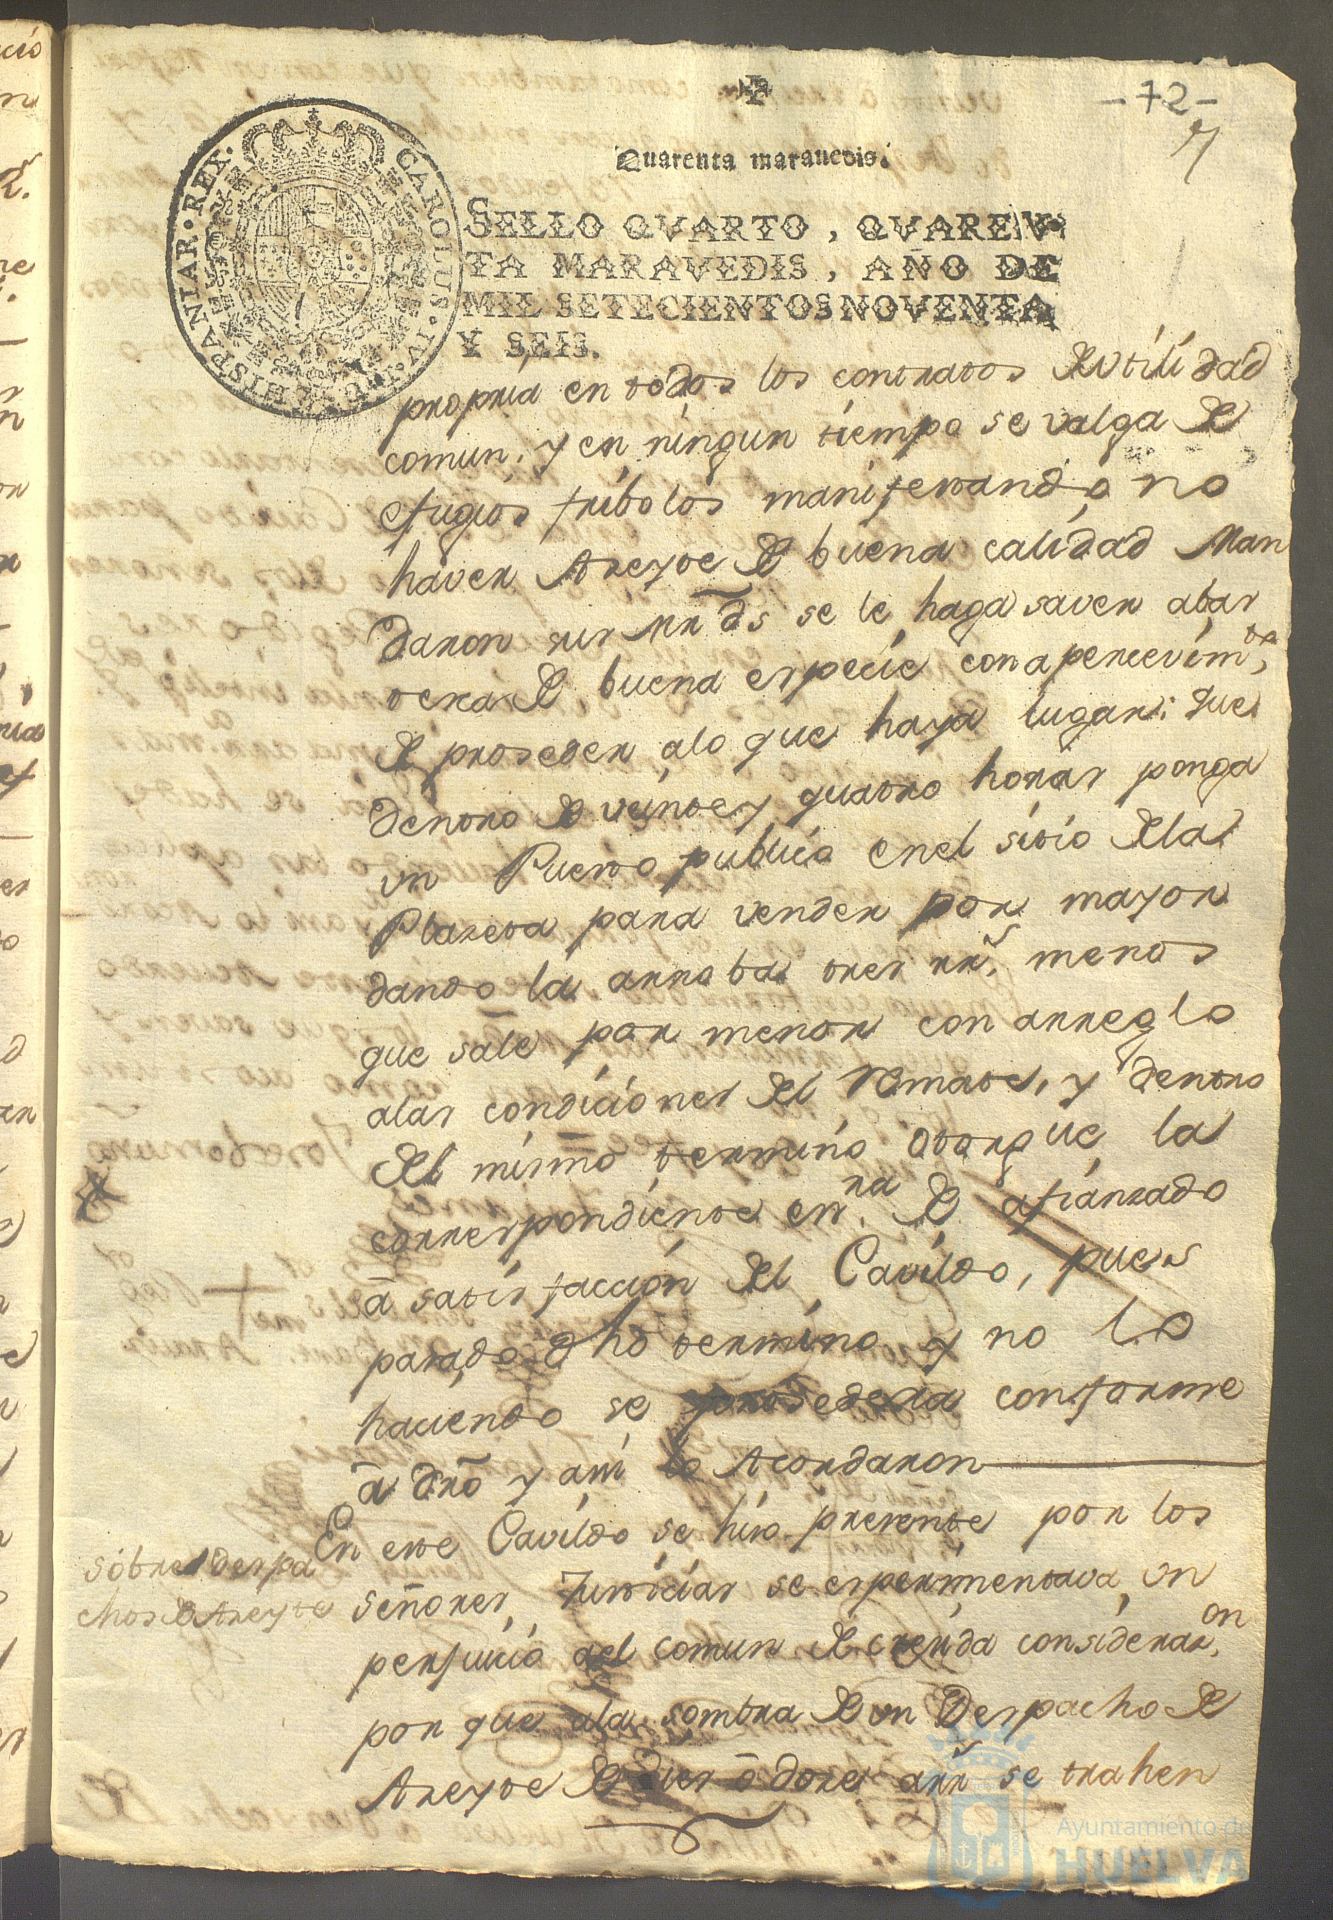 -72-
Quarenta marauedis.
CAROLUS·IV·D·G·HISPANIAR·REX·
SELLO QVARTO, QVAREN-
TA MARAVEDIS, AÑO DE
MIL SETECIENTOS NOVENTA
Y SEIS.
propria en todos los contratos de utilidad
comun. y en ningun tiempo se valga de
efugios fribolos manifestando no
haver Azeyte de buena calidad Man
daron sus Mrds se le haga saver abas
tezca de buena especie con apercevimto
de proseder alo que haya lugar: que
dentro de veinte y quatro horas ponga
un Puesto publico en el sitio de la
Plazeta para vender por mayor
dando la arroba tres rrs. menos
que sale por menor con arreglo
alas condiciones del remate, y dentro
del mismo termino otorgue la
correspondiente esra de afianzado
a satisfaccion del Cavildo, pues
pasado dho termino y no lo
haciendo se prosedera conforme
a dro y asi lo Acordaron
En este Cavildo se hizo presente por los
señores Justicias se esperimentava un
perjuicio del comun de crecida consideraron
por que ala sombra de un Despacho de
Azeyte de dies o dose arrs se trahen
sobre despa
chos de Azeyte
Ayuntamiento de
HUELVA